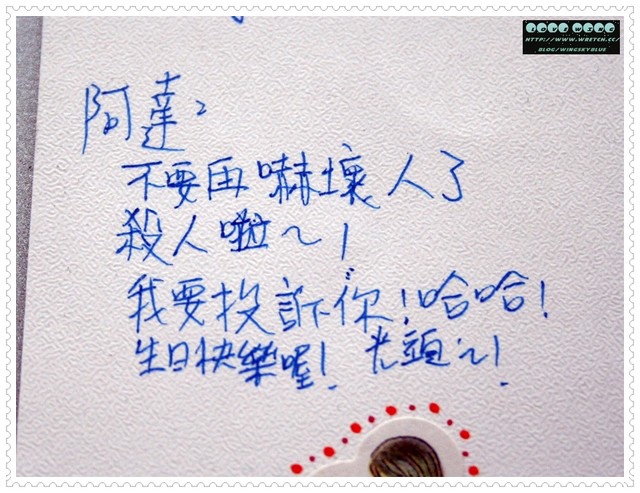 HTTP://WWW.WRETCH.CC/
BLOG/WINGSKYBLUE
阿達：
不要再嚇壞人了
殺人啦～！
我要投訴你！哈哈！
生日快樂喔！光頭～！